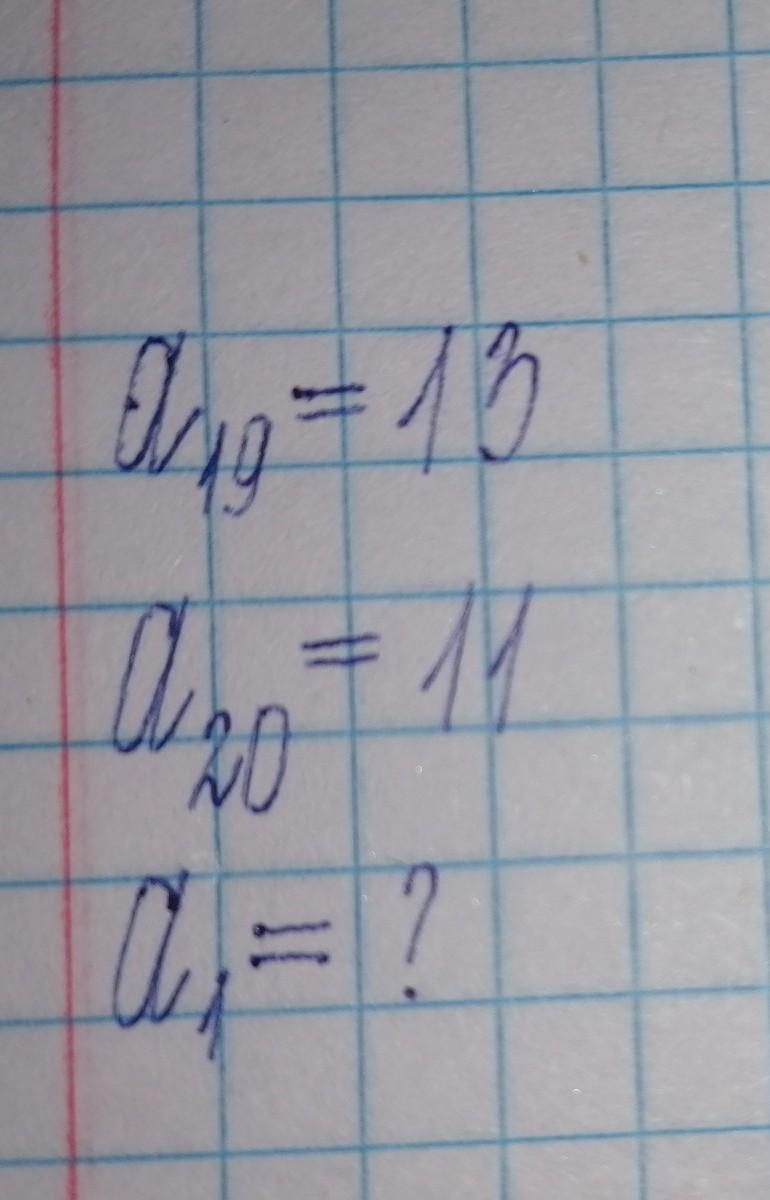 a₁₉ = 13
a₂₀ = 11
a₁ = ?